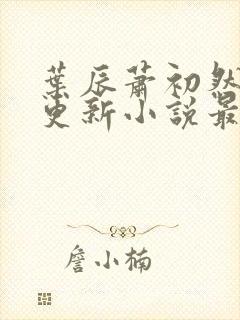 葉辰蕭初然
更新小說最
詹小楠